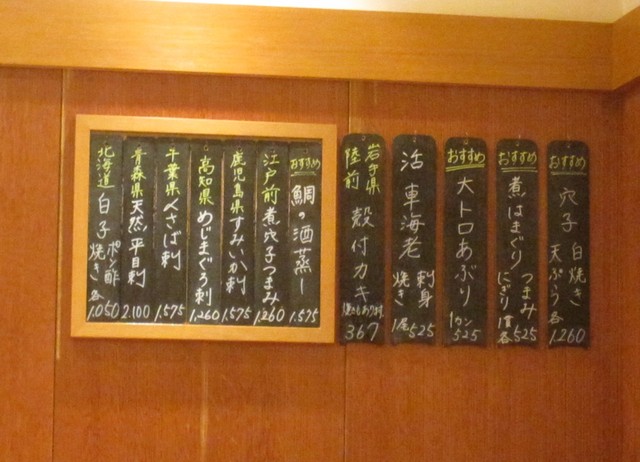 おすすめ
穴子 白焼き 天ぷら 各
1.260
おすすめ
煮はまぐり つまみ にぎり 1貫 各
525
おすすめ
大トロあぶり
1カン
525
活 車海老 刺身 焼き
1尾 525
岩手県 陸前
殻付カキ
焼きもあります
367
おすすめ
鯛の酒蒸し
1.575
江戸前
煮穴子つまみ
1.260
鹿児島県
すみいか刺
1.575
高知県
めじまぐろ刺
1.260
千葉県
さば刺
1.575
青森県
天然平目刺
2.100
北海道
白子 ポン酢 焼き 各
1.050